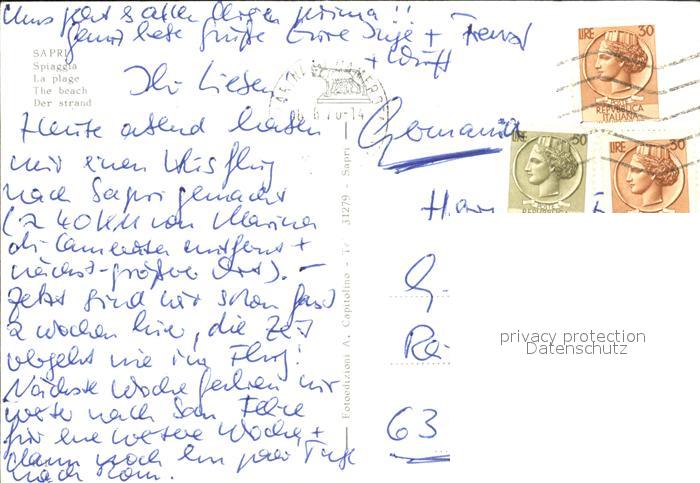 Uns geht's allen bergen prima!!
Ganz liebe Grüße Eure Inge +
+ Wulf
SAPRI
Spiaggia
La plage
The beach
Der strand
Ihr Lieben
Heute abend haben
wir einen Ausflug
nach Sapri gemacht
(ca 40 KM von Marina
di Camerota entfernt +
nächst-größter Ort). –
Jetzt sind wir schon fast
2 Wochen hier, die Zeit
vergeht wie im Flug!
Nächste Woche fahren wir
weiter nach San Felice
für eine weitere Woche +
dann noch ein paar Tage
nach Rom.
Fotoedizioni A. Capitolino - 31279 - Sapri
LIRE 30
REPVBBLICA
ITALIANA
LIRE 50
LIRE 30
Germania
G.
63
privacy protection
Datenschutz